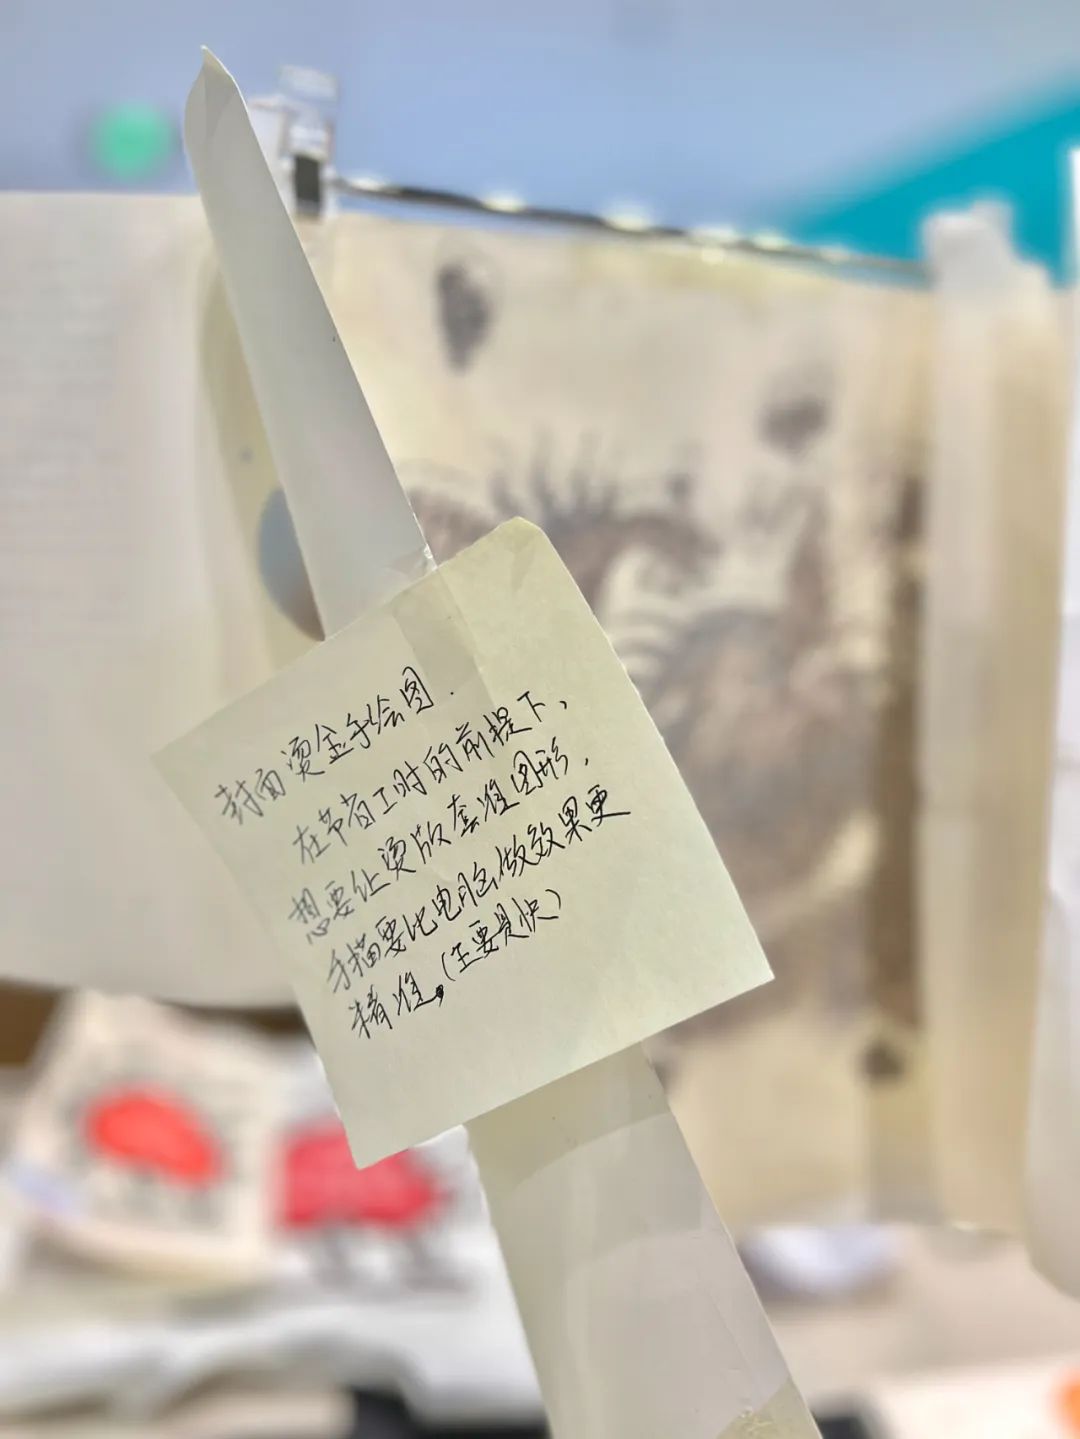 封面烫金手绘图.
在节省工时的前提下、
想要让烫版套准图形、
手描要比电脑做效果更
精准,(主要是快)